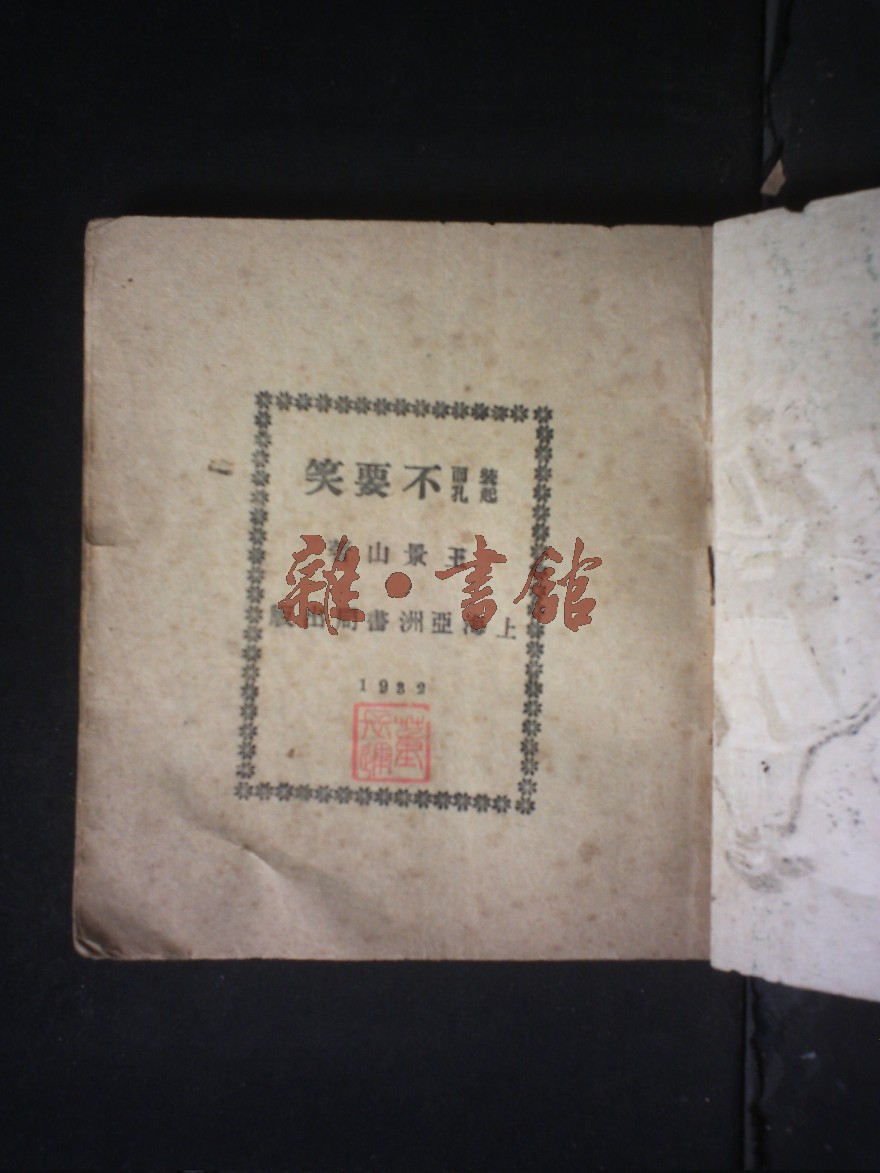 裝起面孔不要笑
王景山著
上海亞洲書局出版
1932
雜•書館